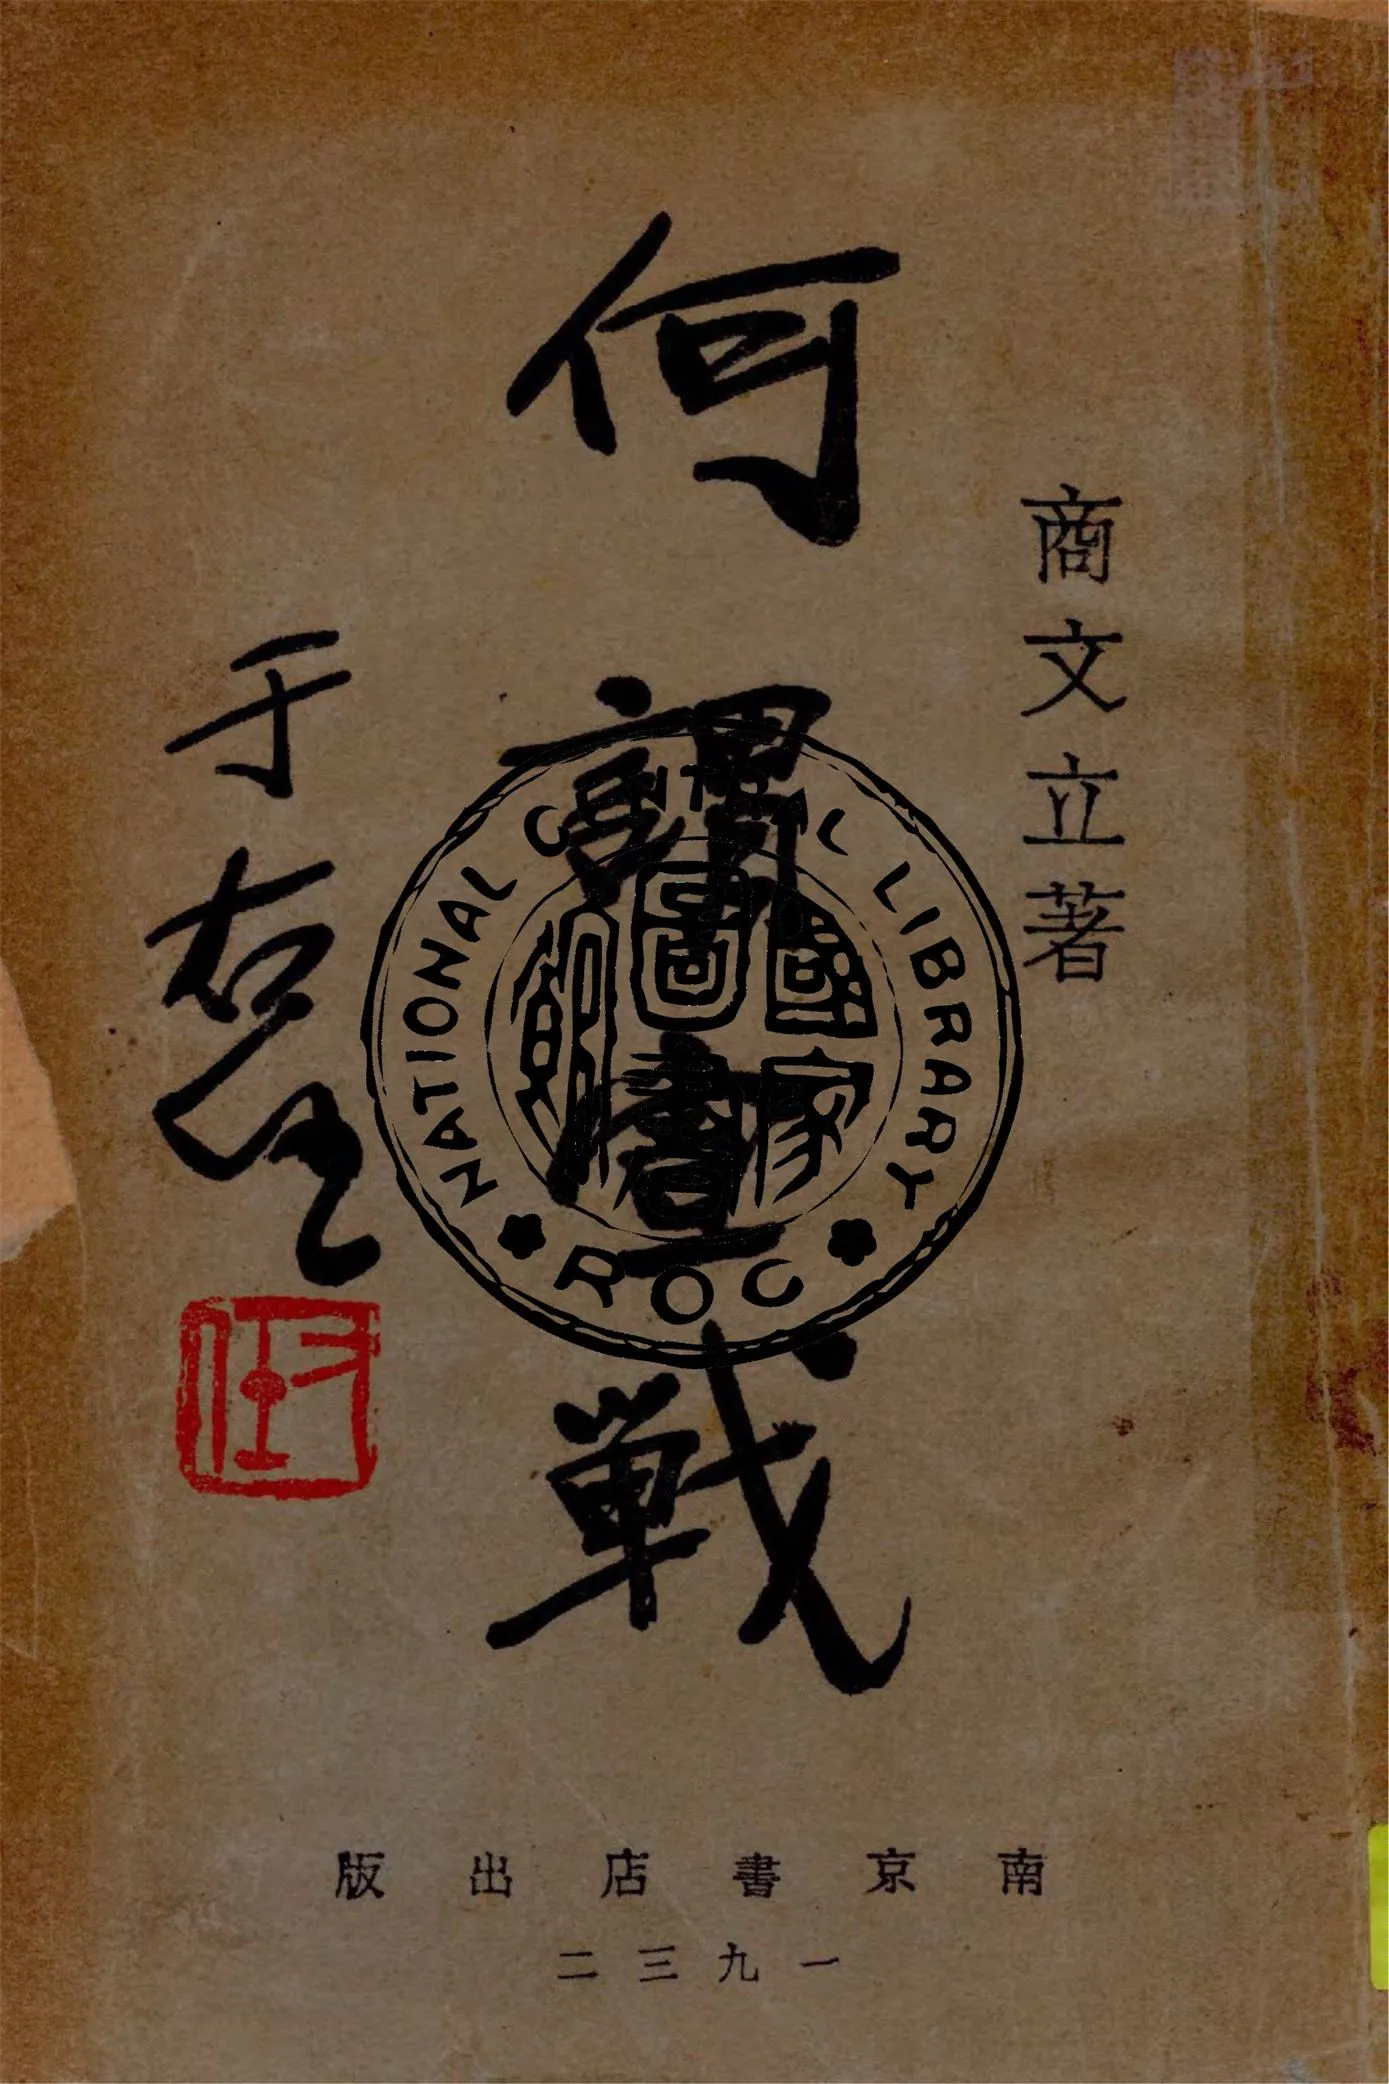 商文立著
何謂宣戰
于右任
NATIONAL CENTRAL LIBRARY
國家圖書館
ROC
南京書店出版
一九三二